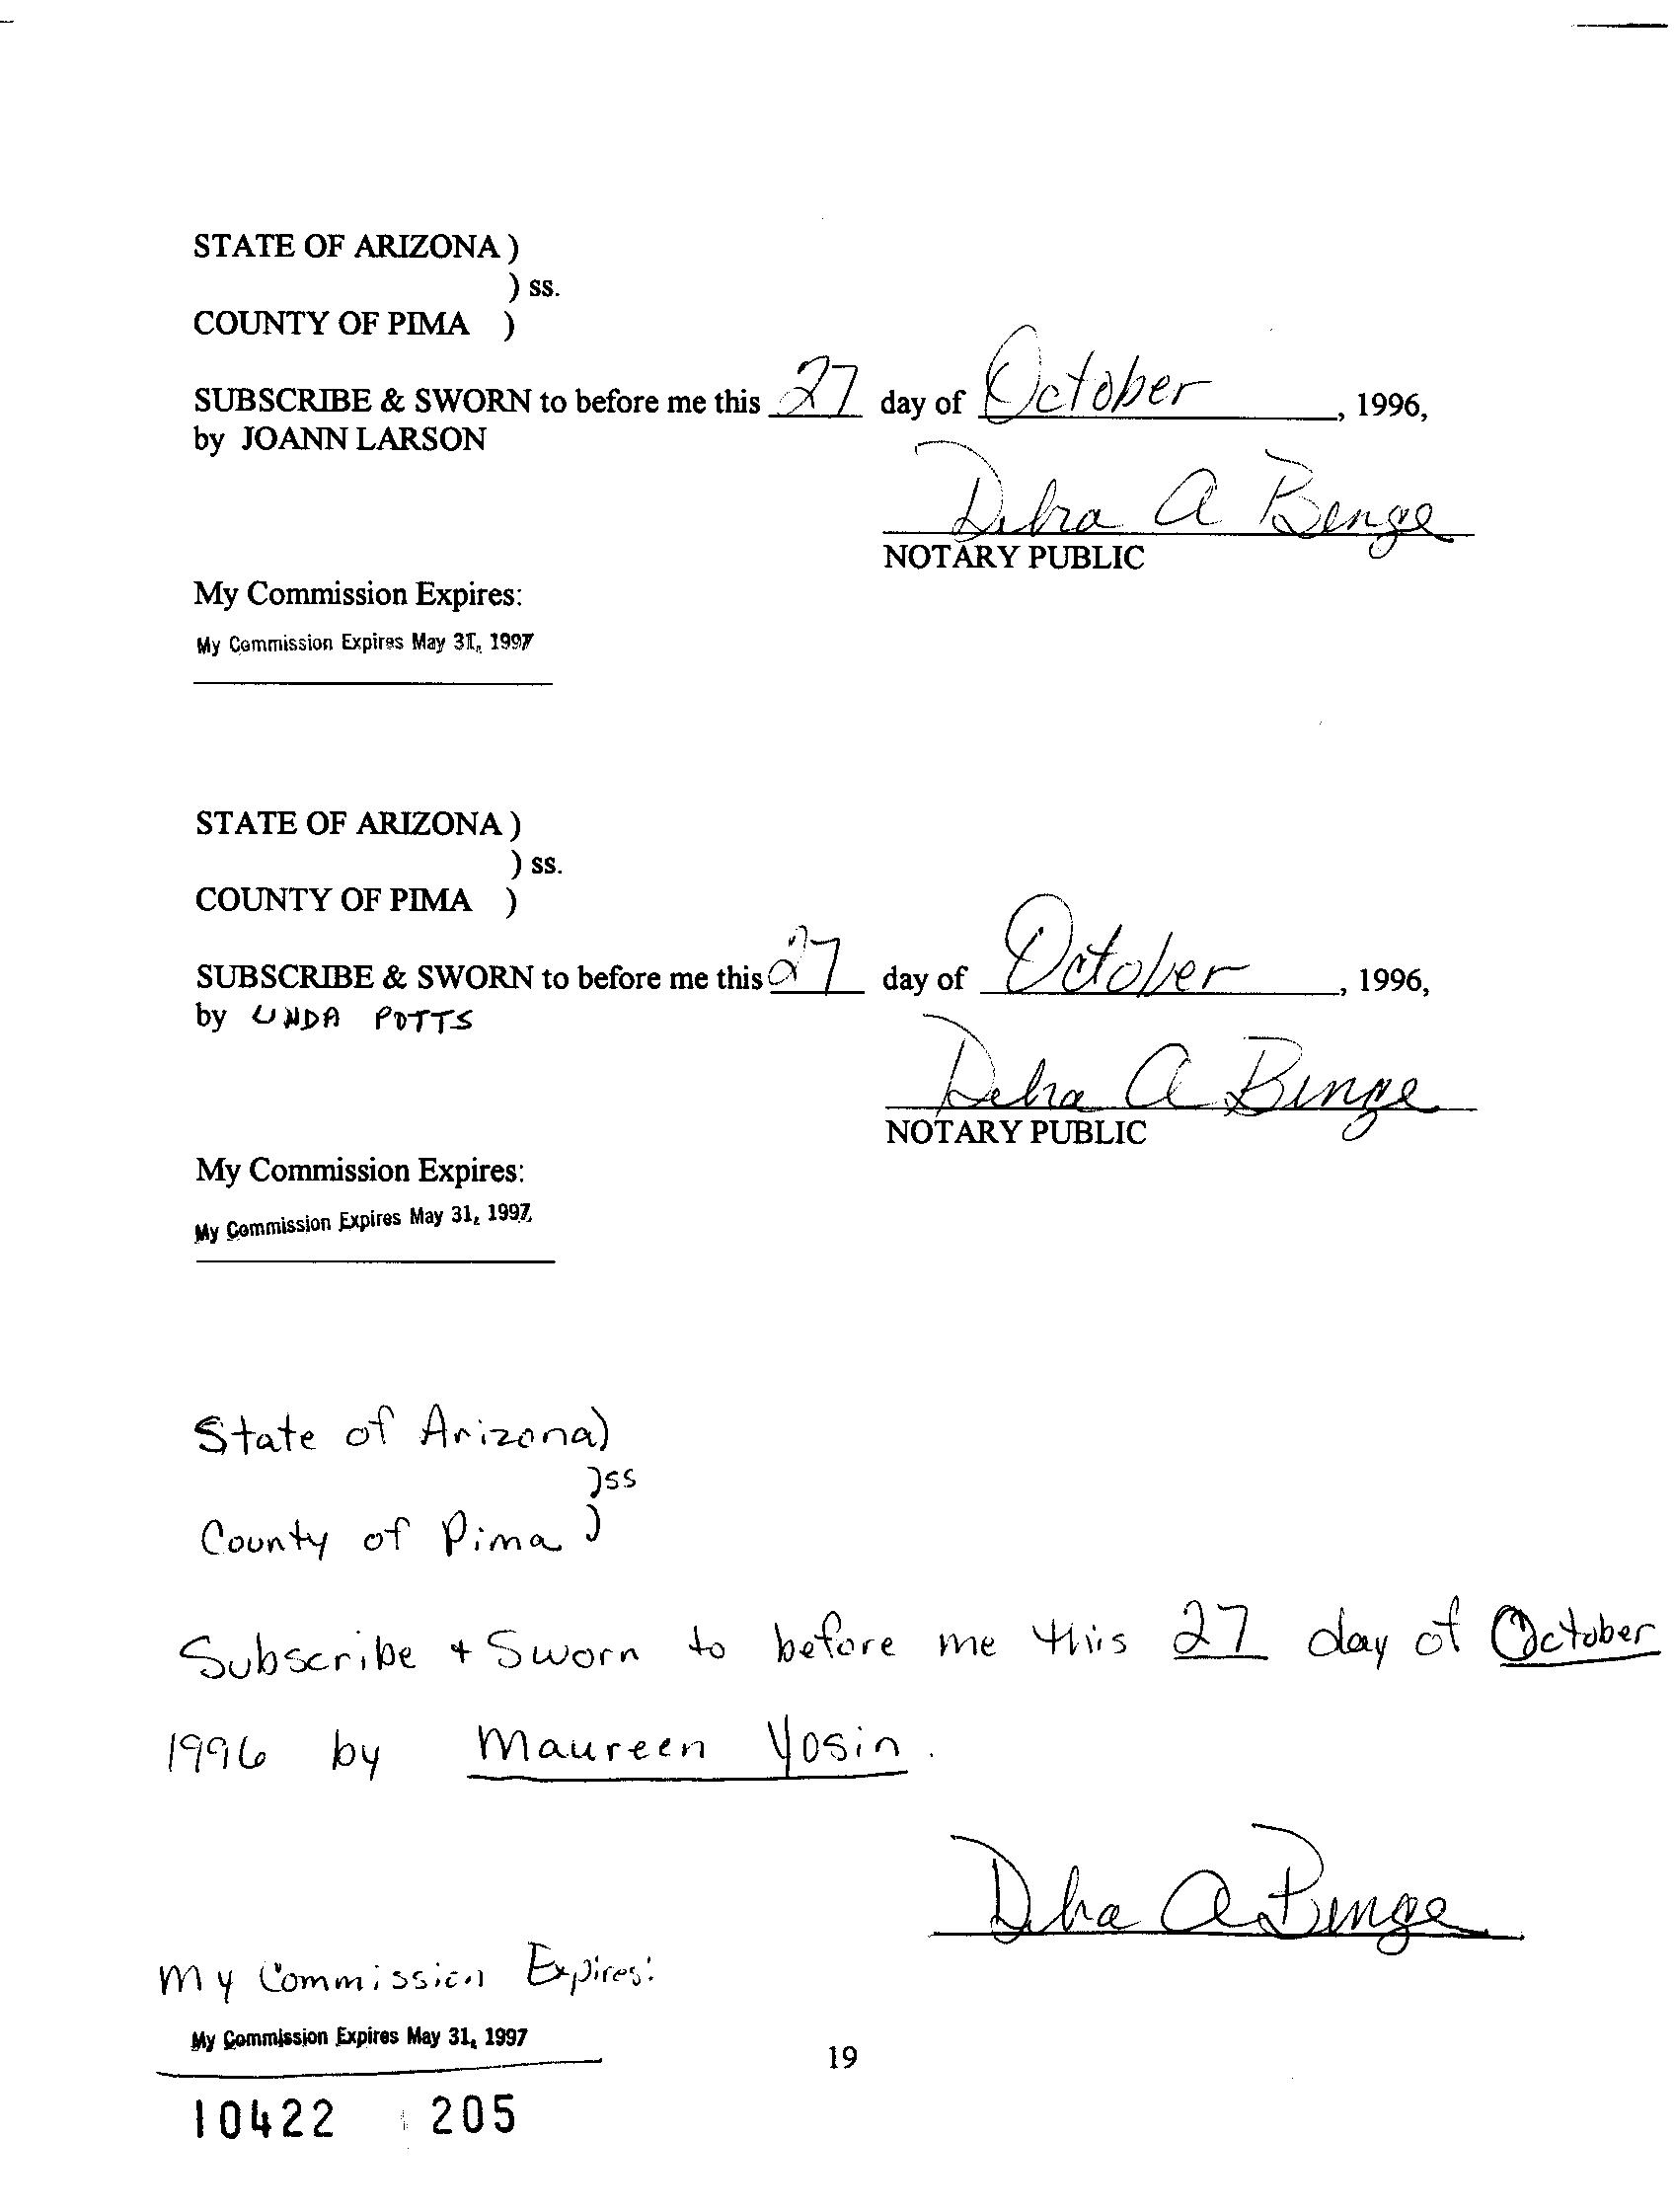 STATE OF ARIZONA )
) ss.
COUNTY OF PIMA )
SUBSCRIBE & SWORN to before me this 27 day of October, 1996,
by JOANN LARSON
Debra A Benge
NOTARY PUBLIC
My Commission Expires:
My Commission Expires May 31, 1997
STATE OF ARIZONA )
) ss.
COUNTY OF PIMA )
SUBSCRIBE & SWORN to before me this 27 day of October, 1996,
by LINDA POTTS
Debra A Benge
NOTARY PUBLIC
My Commission Expires:
My Commission Expires May 31, 1997
State of Arizona)
)ss
County of Pima )
Subscribe + Sworn to before me this 27 day of October
1996 by Maureen Yosin.
Debra A Benge
My Commission Expires:
My Commission Expires May 31, 1997
19
10422 205